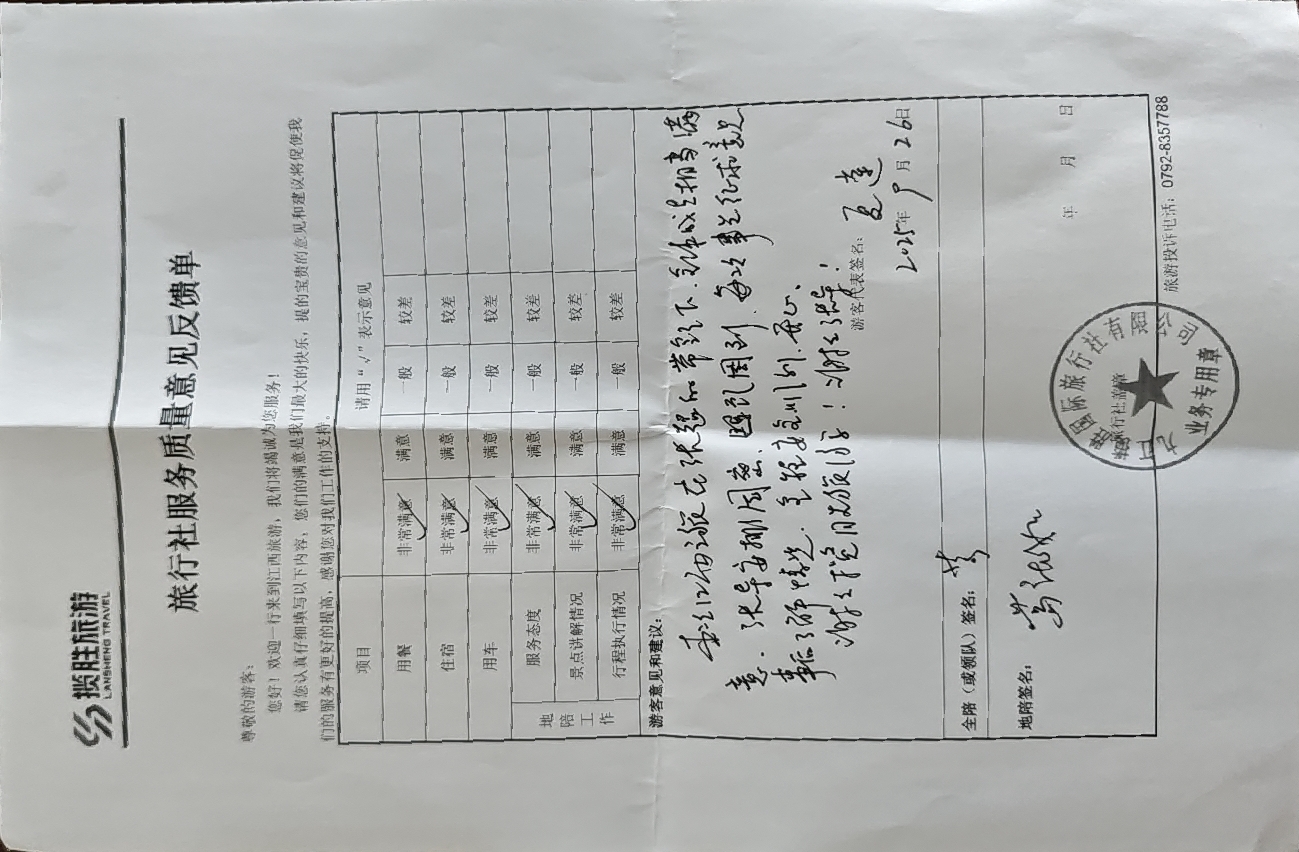 揽胜旅游
LANSHENG TRAVEL
旅行社服务质量意见反馈单
尊敬的游客：
您好！欢迎一行来到江西旅游，我们将竭诚为您服务！
请您认真仔细填写以下内容，您们的满意是我们最大的快乐，提的宝贵的意见和建议将促使我
们的服务有更好的提高，感谢您对我们工作的支持。
项目 请用“√”表示意见
用餐 非常满意√ 满意 一般 较差
住宿 非常满意√ 满意 一般 较差
用车 非常满意√ 满意 一般 较差
地陪工作
服务态度 非常满意√ 满意 一般 较差
景点讲解情况 非常满意√ 满意 一般 较差
行程执行情况 非常满意√ 满意 一般 较差
游客意见和建议：
在张 的带领下，全体成员相当满
意。张导安排周密、 周到，每次事先征求意见
事后 、开心、
谢谢揽胜旅游！谢谢张导！
游客代表签名：夏莲
2025年9月26日
全陪（或领队）签名：
地陪签名：
旅行社盖章
国际旅行社有限公司
业务专用章
年 月 日
旅游投诉电话：0792-8357788